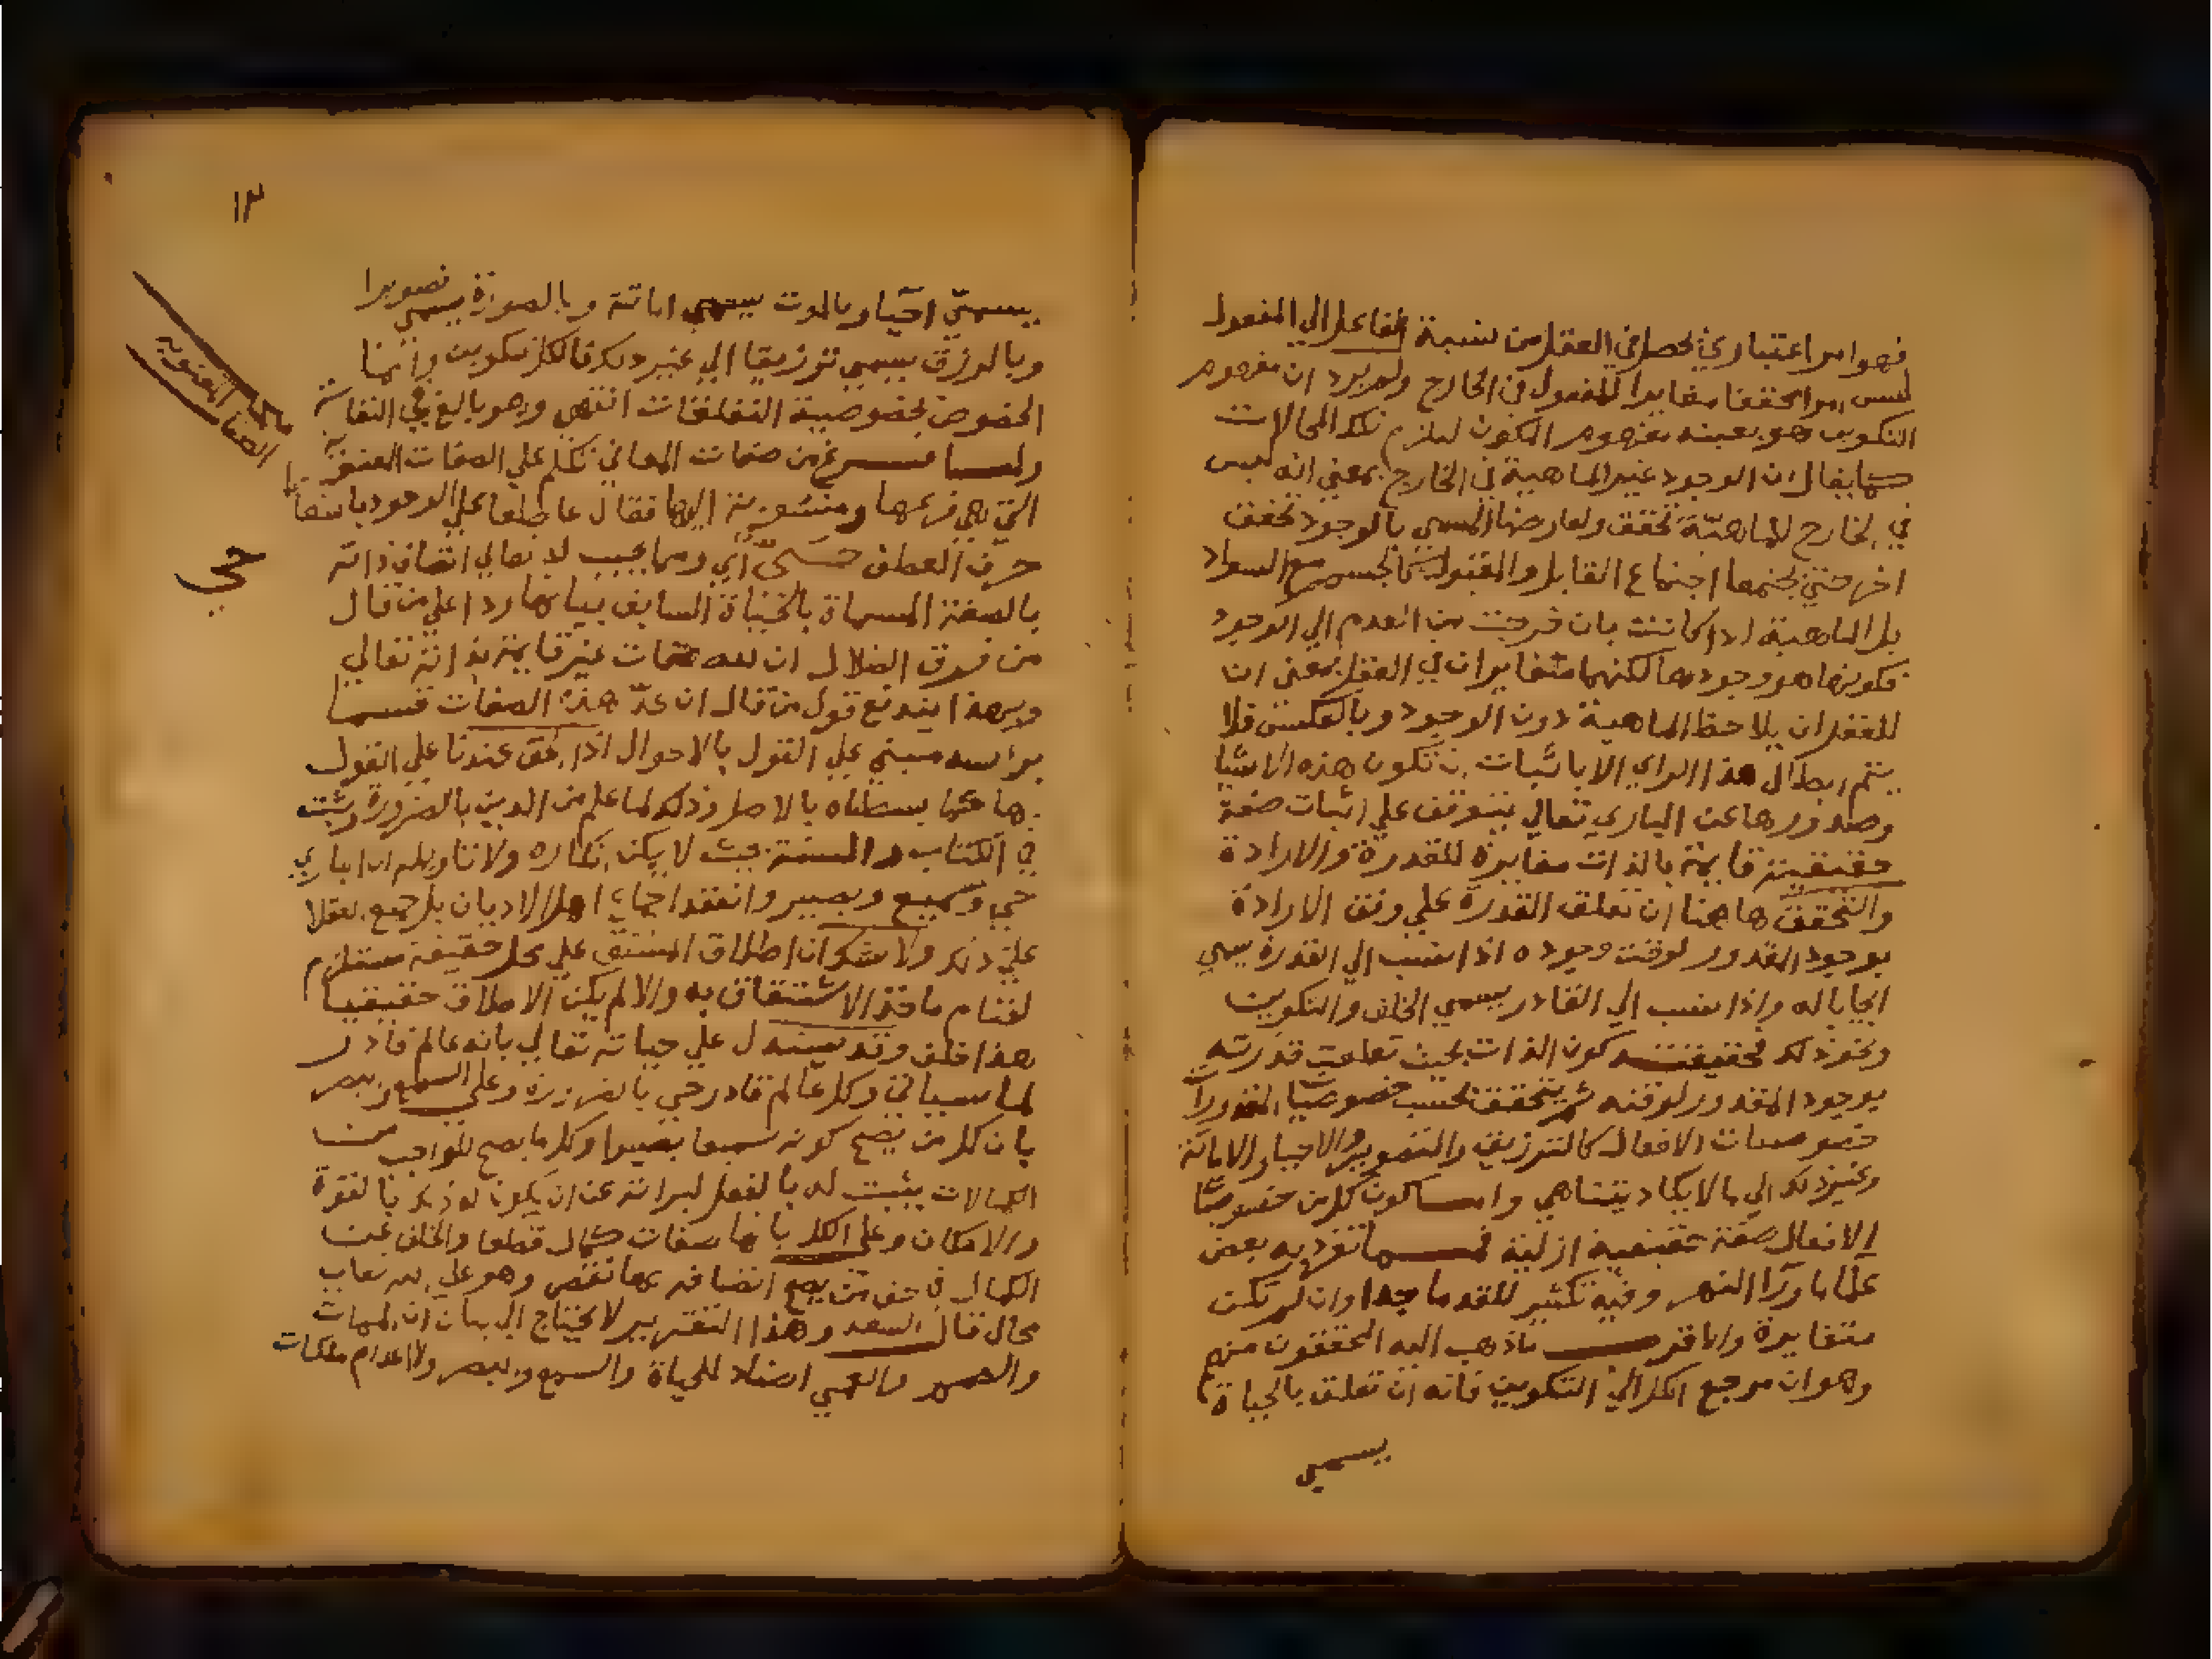 فهو امر اعتباري يحصل في العقل من نسبة الفاعل الي المفعول
ليس امرا محققا مغايرا للمفعول في الخارج ولم يرد ان مفهوم
التكوين هو بعينه مفهوم المكون ليلزم تلك المحالات
كما يقال ان الوجود عين الماهية في الخارج بمعني انه ليس
في الخارج للماهية تحقق ولعارضها المسمي بالوجود تحقق
اخر حتي يجتمعا اجتماع القابل والمقبول كالجسم مع السواد
بل الماهية اذا كانت بان خرجت من العدم الي الوجود
فكونها هو وجودها لكنهما متغايران في العقل بمعني ان
للعقل ان يلاحظ الماهية دون الوجود وبالعكس فلا
يتم ابطال هذا الراي الا باثبات ان تكون هذه الاشيا
وصدورها عن الباري تعالي يتوقف علي اثبات صفة
حقيقية قايمة بالذات مغايرة للقدرة والارادة
والتحقق هاهنا ان تعلق القدرة علي وفق الارادة
بوجود المقدور لوقت وجوده اذا نسب الي القدرة يسمي
ايجابا له واذا نسب الي القادر يسمي الخلق والتكوين
ونحو ذلك فحقيقته كون الذات بحيث تعلقت قدرته
بوجود المقدور لوقته ثم يتحقق بحسب خصوصيات المقدورات
خصوصيات الافعال كالترزيق والتصوير والاحيا والاماتة
وغير ذلك الي ما لا يكاد يتناهي واما كون كل من خصوصيات
الافعال صفة حقيقية ازلية فمما تفرد به بعض
علما ماورا النهر وفيه تكثير للقدما جدا وان لم تكن
متغايرة والاقرب ما ذهب اليه المحققون منهم
وهو ان مرجع الكل الي التكوين فانه ان تعلق بالحياة
يسمي
١٣
يسمي احيا وبالموت يسمي اماتة وبالصورة يسمي تصويرا
وبالرزق يسمي ترزيقا الي غير ذلك فالكل تكوين وانما
الخصوص بخصوصية التعلقات انتهي وهو بالغ في النفاسة
ولما فرغ من صفات المعاني تكلم علي الصفات المعنوية
التي هي فرعها ومنسوبة اليها فقال عاطفا علي الوجود باسقاط
حرف العطف حي اي ومما يجب له تعالي اتصاف ذاته
بالصفة المسماة بالحياة السابق بيانها ردا علي من قال
من فرق الضلال ان لله صفات غير قايمة بذاته تعالي
وبهذا يندفع قول من قال ان عد هذه الصفات قسما
براسه مبني علي القول بالاحوال اذ الحق عندنا علي القول
بها كما بسطناه بالاصل وذلك لما علم من الدين بالضرورة وثبت
في الكتاب والسنة بحيث لا يمكن انكاره ولا تاويله ان الباري
حي وسميع وبصير وانعقد اجماع اهل الاديان بل جميع العقلا
علي ذلك ولا شك ان اطلاق المشتق علي محل حقيقة مستلزم
لقيام ماخذ الاشتقاق به والا لم يكن الاطلاق حقيقيا
هذا خلف وقد يستدل علي حياته تعالي بانه عالم قادر
لما سياتي وكل عالم قادر حي بالضرورة وعلي السمع والبصر
بان كل من يصح كونه سميعا بصيرا وكل ما يصح للواجب من
الكمالات يثبت له بالفعل لبراته عن ان يكون له ذلك بالقوة
والامكان وعلي الكل بانها صفات كمال قطعا والخلو عن
الكمال في حق من يصح اتصافه بها نقص وهو علي الله تعالي
محال قال السعد وهذا التقرير لا يحتاج الي بيان ان الممات
والصمم والعمي اضداد للحياة والسمع والبصر ولا اعدام ملكات
الصفات المعنوية
حي